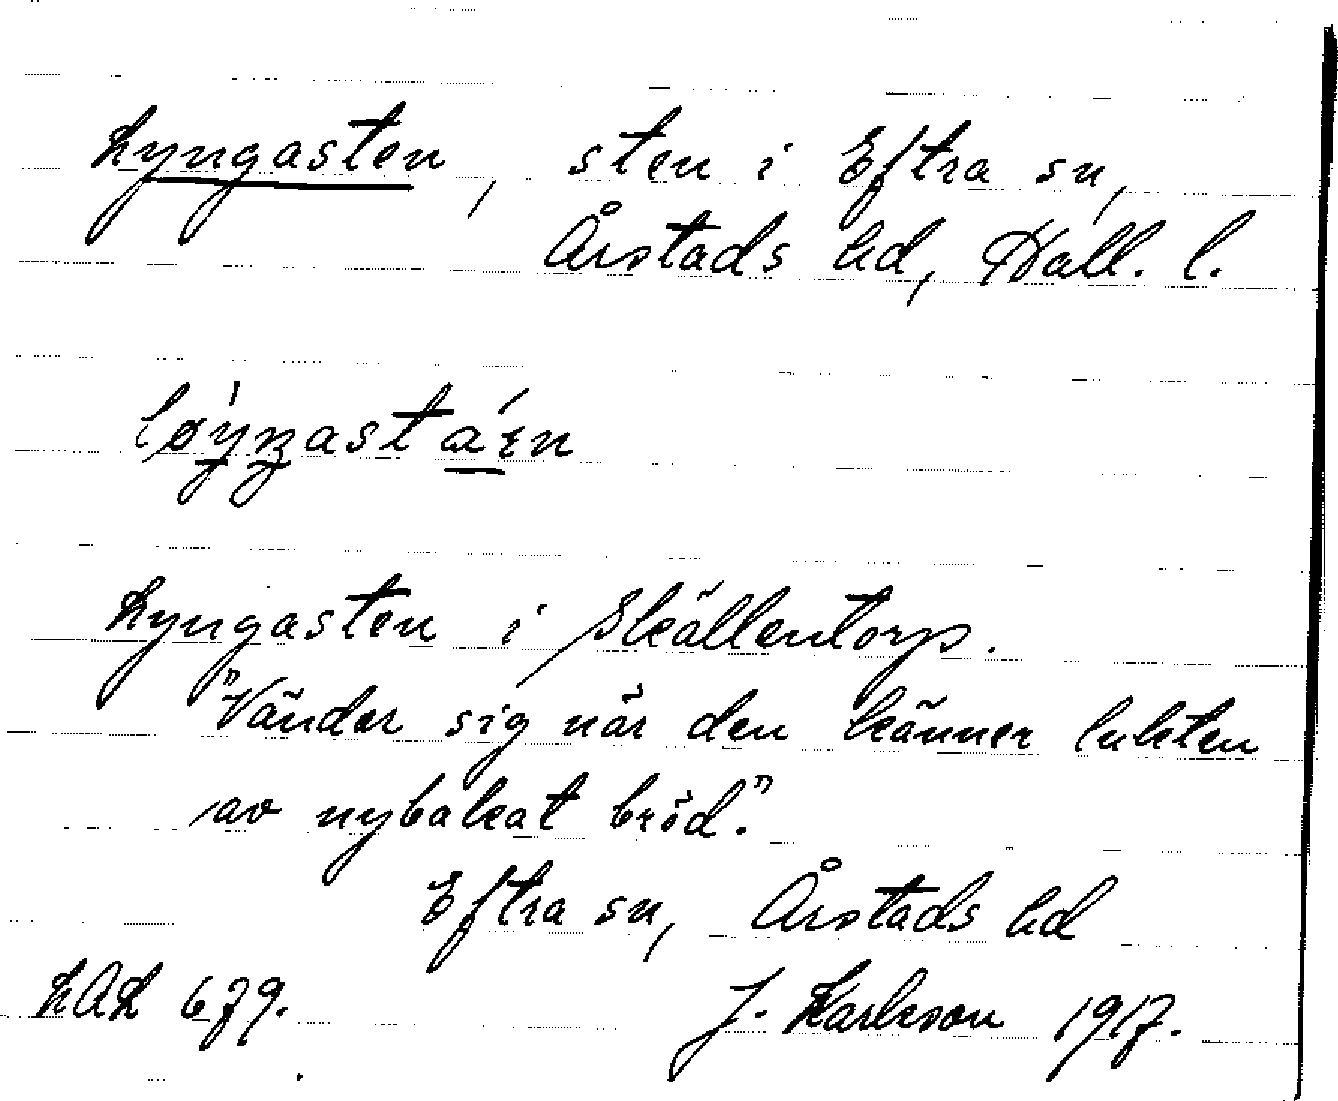 Lyngasten, sten i Eftra sn,
Årstads hd, Hall. l.
løýŋastáɛn
Lyngasten i Skällentorp.
"Vänder sig när den känner lukten
av nybakat bröd."
Eftra sn, Årstads hd
LAL 679. J. Karlsson 1917.